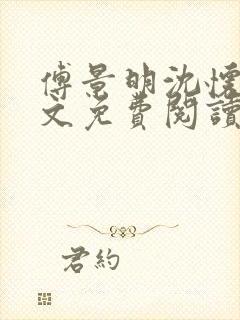 傅景明沈懷
文免費閱讀
君約